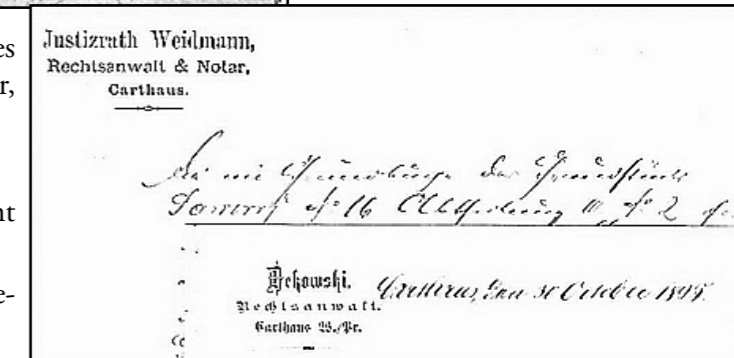 es
r,
nt
e-
Justizrath Weidmann,
Rechtsanwalt & Notar,
Carthaus.
im Grundbuche des Grundstücks
No 16 Abtheilung No 2
Dekowski.
Rechtsanwalt.
Carthaus W./Pr.
Carthaus, den 30 October